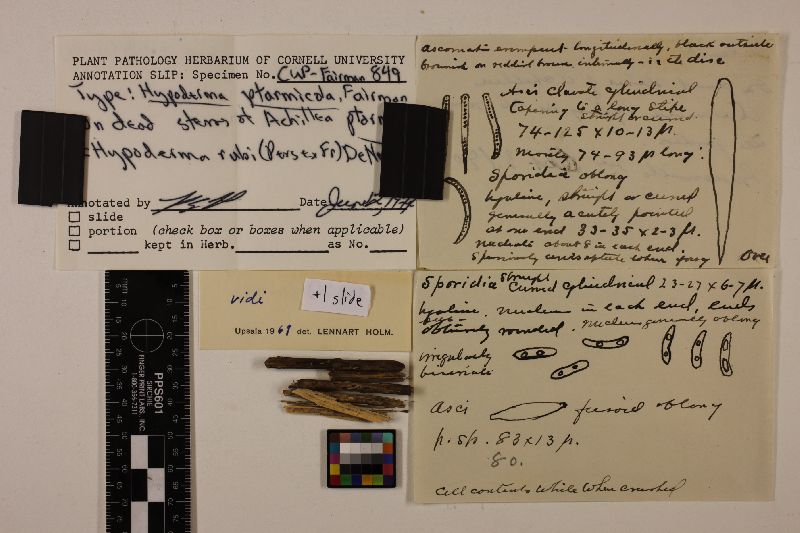 PLANT PATHOLOGY HERBARIUM OF CORNELL UNIVERSITY
ANNOTATION SLIP: Specimen No. CUP-Fairman 849
Type: Hypoderma ptarmicola, Fairman
on dead stems of Achillea
=Hypoderma rubi (Pers ex Fr)
Annotated by
Date
slide
portion (check box or boxes when applicable)
kept in Herb. as No.
vidi
+1 slide
Upsala 1969 det. LENNART HOLM.
PPS601
FINGER PRINT LABS, INC.
SIRCHIE
1-800-356-7311
ascomata erumpent longitudinally, black outside
brown or reddish brown internally - in the disc
Asci clavate cylindrical
tapering to a long stipe
straight or curved
74-125 x 10-13 µ.
mostly 74-93 µ long.
Sporidia oblong
hyaline, straight or curved
generally acutely pointed
at one end 33-35 x 2-3 µ.
nucleate about 8 in each end.
when young
Over
Sporidia Straight
Curved cylindrical 23-27 x 6-7 µ.
hyaline, nucleus in each end, ends
obtusely rounded. Nucleus generally oblong
irregularly
biseriate
Asci fusoid oblong
p. sp. 83 x 13 µ.
80.
Cell contents white when crushed